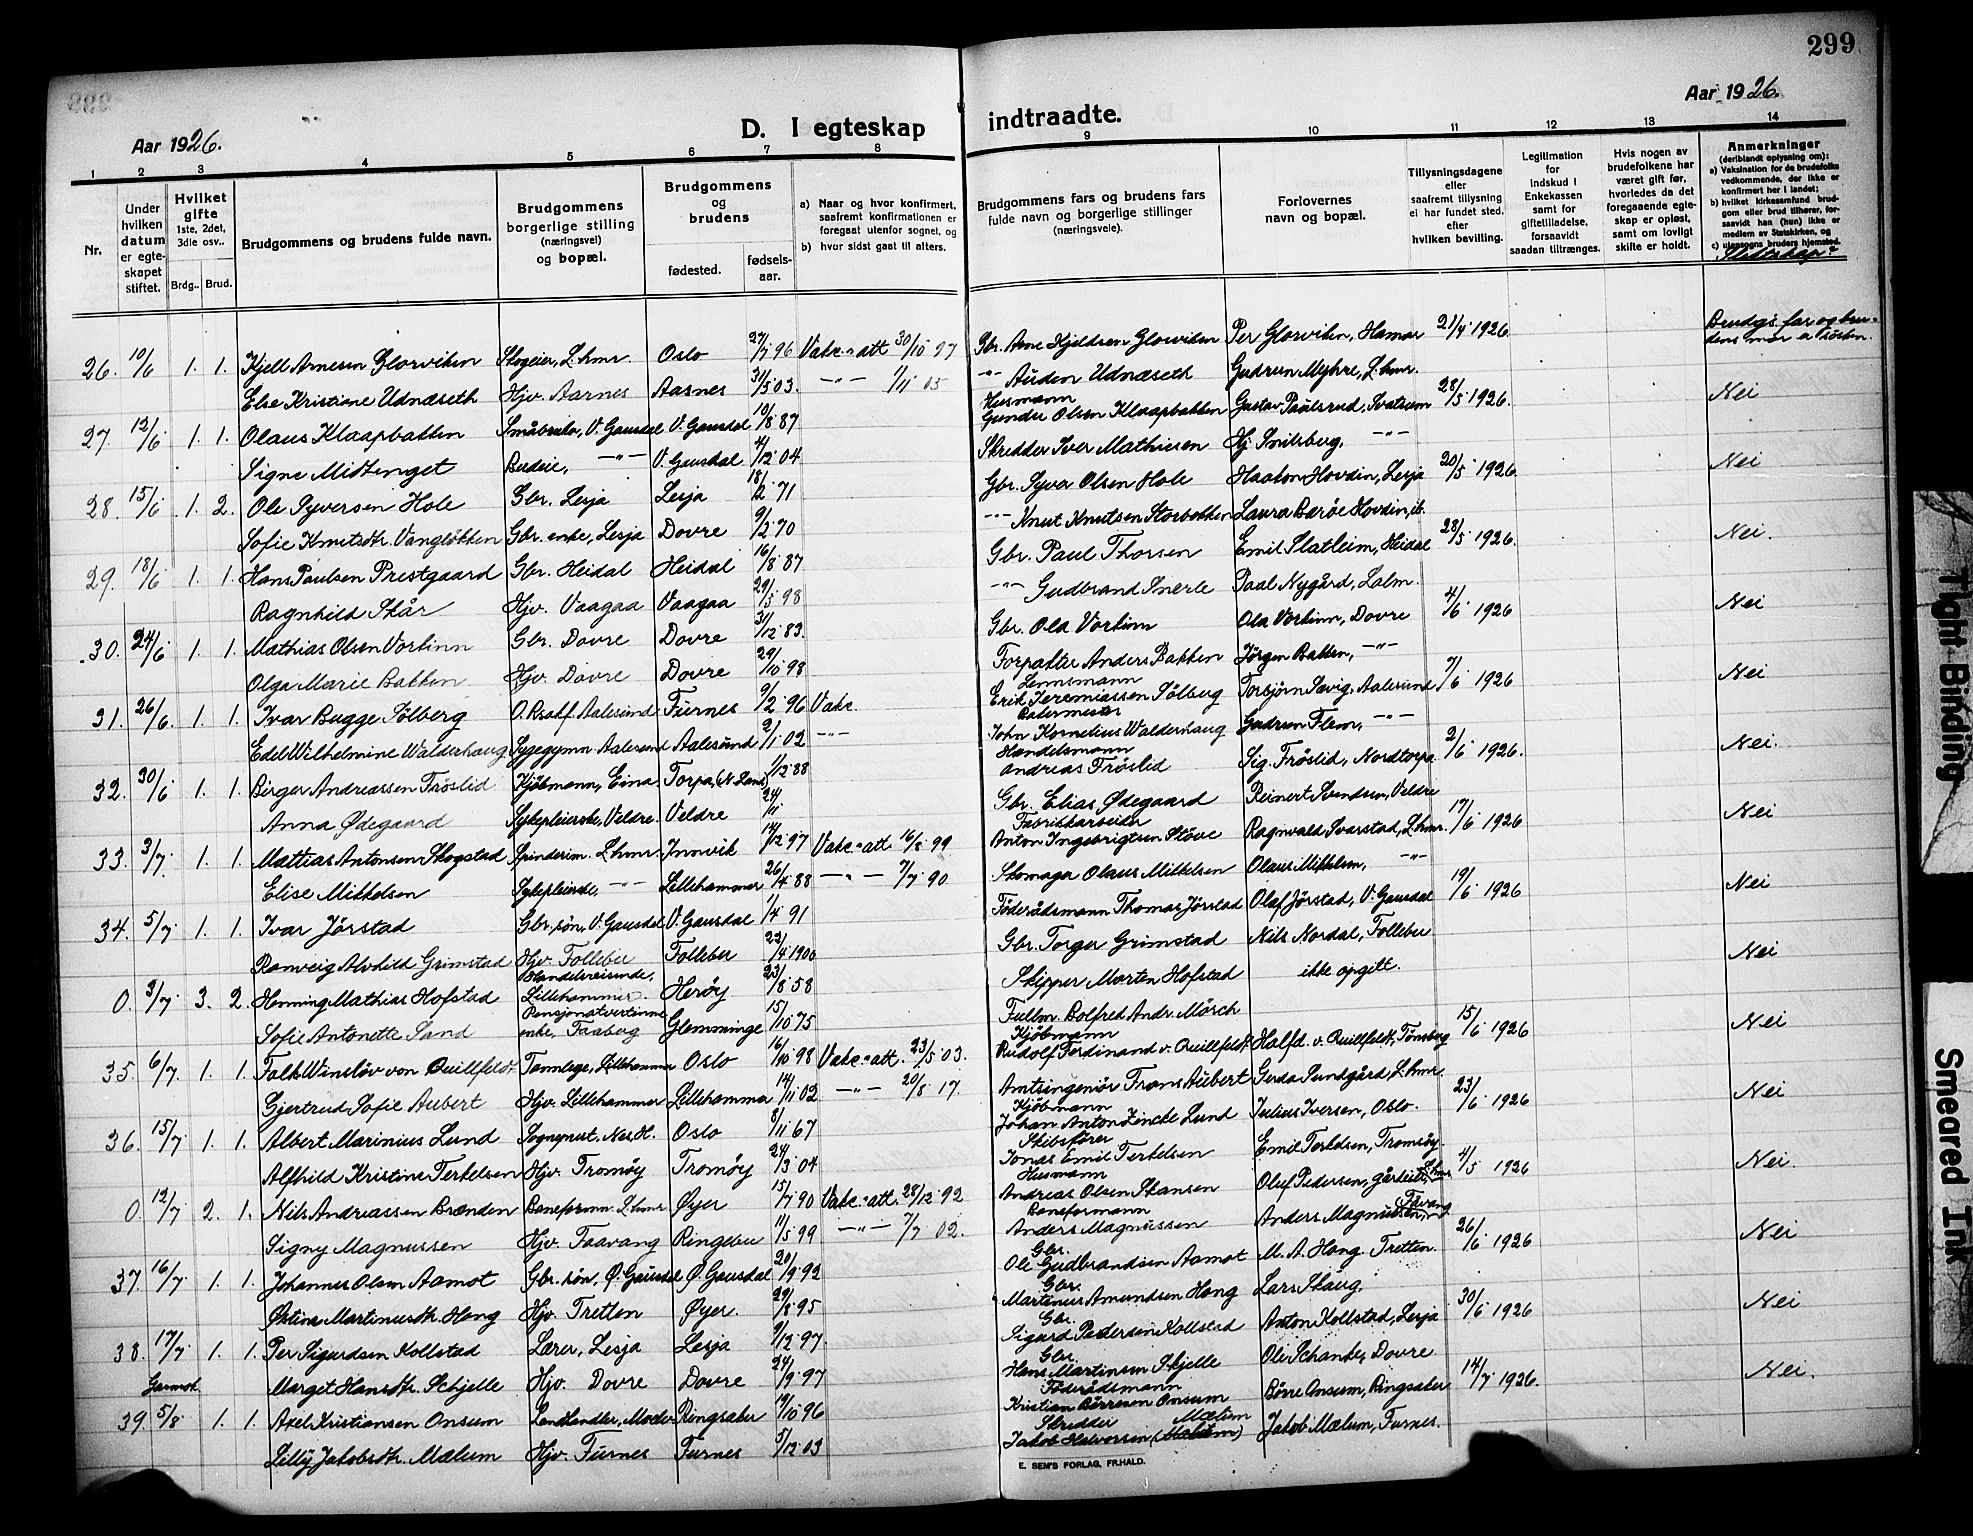 299
Aar 1926.
D. I egteskap indtraadte.
Aar 1926.
1 2 3 4 5 6 7 8 9 10 11 12 13 14
Nr.
Under hvilken datum er egteskapet stiftet.
Hvilket gifte 1ste, 2det, 3die osv..
Brdg.. Brud.
Brudgommens og brudens fulde navn.
Brudgommens borgerlige stilling (næringsvei) og bopæl.
Brudgommens og brudens
fødested.
fødselsaar.
a) Naar og hvor konfirmert, saafremt konfirmationen er foregaat utenfor sognet, og
b) hvor sidst gaat til alters.
Brudgommens fars og brudens fars fulde navn og borgerlige stillinger (næringsveie).
Forlovernes navn og bopæl.
Tillysningsdagene eller saafremt tillysning ei har fundet sted, efter hvilken bevilling.
Legitimation for indskud i Enkekassen samt for giftetilladelse, forsaavidt saadan tiltrænges.
Hvis nogen av brudefolkene har været gift før, hvorledes da det foregaaende egteskap er opløst, samt om lovligt skifte er holdt.
Anmerkninger (deriblandt oplysning om):
a) Vaksination for de brudefolks vedkommende, der ikke er konfirmert her i landet;
b) hvilket kirkesamfund brudgom eller brud tilhører, forsaavidt han (hun) ikke er medlem av Statskirken, og
c) utensogns bruders hjemsted.
Slektskap?
26. 10/6 1. 1. Kjell Arnesen Glorviken Skogeier, L.hmr. Oslo 27/7 96 Vakc. att 30/10 97 Gbr. Arne Kjeldsen Glorviken Per Glorviken, Hamar 21/4 1926. Brudgs. far og brudens mor er søsken.
Else Kristiane Udnæseth Hjv. Aarnes Aasnes 31/5 03. —"— 1/11 05 —"— Auden Udnæseth Gudrun Myhre, L.hmr.
27. 12/6 1. 1. Olaus Klaapbakken Småbruker, V. Gausdal V. Gausdal 10/8 87 Husmann Gunder Olsen Klaapbakken Gustav Paulsrud, Svatsum 28/5 1926. Nei
Signe Midtenget Budeie, —"— V. Gausdal 4/12 04 Skredder Iver Mathiesen Hj. Snilsberg, —"—
28. 15/6 1. 2. Ole Syversen Hole Gbr. Lesja Lesja 18/2 71 Gbr. Syver Olsen Hole Haakon Hovdin, Lesja 20/5 1926. Nei
Sofie Knutsdtr. Vangløkken Gbr. enke, Lesja Dovre 9/2 70 —"— Knut Knutsen Storbakken Laura Barøe Hovdin, ib.
29. 18/6 1. 1. Hans Paulsen Prestgaard Gbr. Heidal Heidal 16/8 87 Gbr. Paul Thorsen Emil Slatleim, Heidal 28/5 1926. Nei.
Ragnhild Skår Hjv. Vaagaa Vaagaa 29/5 98 —"— Gudbrand Snerle Paal Nygård, Lalm.
30. 24/6 1. 1. Mathias Olsen Vorkinn Gbr. Dovre Dovre 31/12 83. Gbr. Ola Vorkinn Ola Vorkinn, Dovre 4/6 1926 Nei
Olga Marie Bakken Hjv. Dovre Dovre 29/10 98 Forpakter Anders Bakken Jørgen Bakken, —"—
31. 26/6 1. 1. Ivar Bugge Sølberg O.Rsakf. Aalesund Furnes 9/2 96 Vakc. Lensmann Erik Jeremiassen Sølberg Torbjørn Sævig, Aalesund 7/6 1926 Nei
Edel Wilhelmine Walderhaug Sygegymn. Aalesund Aalesund 2/1 02 —"— John Kornelius Walderhaug Gudrun Flem, —"—
32. 30/6 1. 1. Birger Andreassen Frøslid Kjøbmann, Eina Torpa, (N. Land) 1/12 88 Handelsmann Andreas Frøslid Sig. Frøslid, Nordtorpa 2/6 1926. Nei.
Anna Ødegaard Sykepleierske, Veldre Veldre 24/11 Gbr. Elias Ødegaard Reinert Svendsen, Veldre
33. 3/7. 1. 1. Mattias Antonsen Skogstad Spinderim. L.hmr. Innvik 14/12 97 Vakc. att. 16/8 99 Fabrikkarbeider Anton Ingebrigtsen Støve Ragnvald Svarstad, L.hmr. 17/6 1926 Nei
Elise Mikkelsen Sykepleierske, —"— Lillehammer 26/4 88 —"— 7/7 90 Skomaga Olaus Mikkelsen Olaus Mikkelsen, —"—
34. 5/7. 1. 1. Ivar Jørstad Gbr. søn, V. Gausdal V. Gausdal 1/4 91 Føderådsmann Thomas Jørstad Olaf Jørstad, V. Gausdal 19/6 1926 Nei
Ranveig Alvhild Grimstad Hjv. Follebu Follebu 22/4 1900 Gbr. Torger Grimstad Nils Nordal, Follebu
0. 3/7. 3. 2. Henning Mathias Hofstad Handelsreisende, Lillehammer. Herøy 23/8 58 Skipper Morten Hofstad ikke opgitt. Nei
Sofie Antonette Sand Pensjonatvertinne enke, Faaberg Glemminge 15/10 75 Fullm. Bolfred Andr. Mörch
35. 6/7. 1. 1. Falk Winsløv von Quillfeldt Tannlege, Lillehammer Oslo 16/10 98 Vakc. att. 23/5 03. Kjøbmann Rudolf Ferdinand v. Quillfeldt Halfd. v. Quillfeldt, Tønsberg 15/6 1926 Nei
Gjertrud Sofie Aubert Hjv. Lillehammer Lillehammer 14/11 02 —"— 20/8 17. Amtsingeniør Frans Aubert Gerda Sundgård, L.hmr.
36. 15/7 1. 1. Albert Marinius Lund Sogneprest, Nes H. Oslo 8/11 67 Kjøbmann Johan Anton Zincke Lund Julius Iversen, Oslo. 23/6 1926 Nei
Alfhild Kristine Terkelsen Hjv. Tromøy Tromøy 24/3 04 Skibsfører Jonas Emil Terkelsen Emil Terkelsen, Tromøy.
0. 12/7 2. 1. Nils Andreassen Brænden Baneformn. L.hmr Øyer 15/7 90 Vakc. att. 28/12 92 Husmann Andreas Olsen Skansen Oluf Pedersen, L.hmr. 4/5 1926 Nei.
Signy Magnussen Hjv. Faavang Ringebu 11/5 99 —"— 7/7 02. Baneformann Anders Magnussen Anders Magnussen, Fåvang
37. 16/7 1. 1. Johannes Olsen Aamot Gbr. søn, Ø. Gausdal Ø. Gausdal 20/9 92 Gbr. Ole Gudbrandsen Aamot M. A. Hong, Tretten. 26/6 1926 Nei
Østine Martinusdtr. Hong Hjv. Tretten Øyer 29/8 95 Gbr. Martinus Amundsen Hong Lars Skaug,
38. 17/7. 1. 1. Per Sigurdsen Kollstad Lærer, Lesja Lesja 9/12 97. Gbr. Sigurd Pedersen Kollstad Anton Kollstad, Lesja 30/6 1926 Nei
Garmok Marget Hansdtr. Schjelle Hjv. Dovre Dovre 24/9 97 Gbr. Hans Martinsen Skjelle Ole Schanke, Dovre
39. 5/8. 1. 1. Axel Kristiansen Onsum Landhandler, Moelv Ringsaker 19/10 96 Føderådsmann Kristian Børresen Onsum Børre Onsum, Ringsaker 14/7 1926. Nei.
Lilly Jakobsdtr. Mælum Hjv. Furnes Furnes 5/12 03 Skredder Jakob Halvorsen Mælum Jakob Mælum, Furnes.
E. SEM'S FORLAG, FR.HALD.
Tight Binding
Smeared Ink